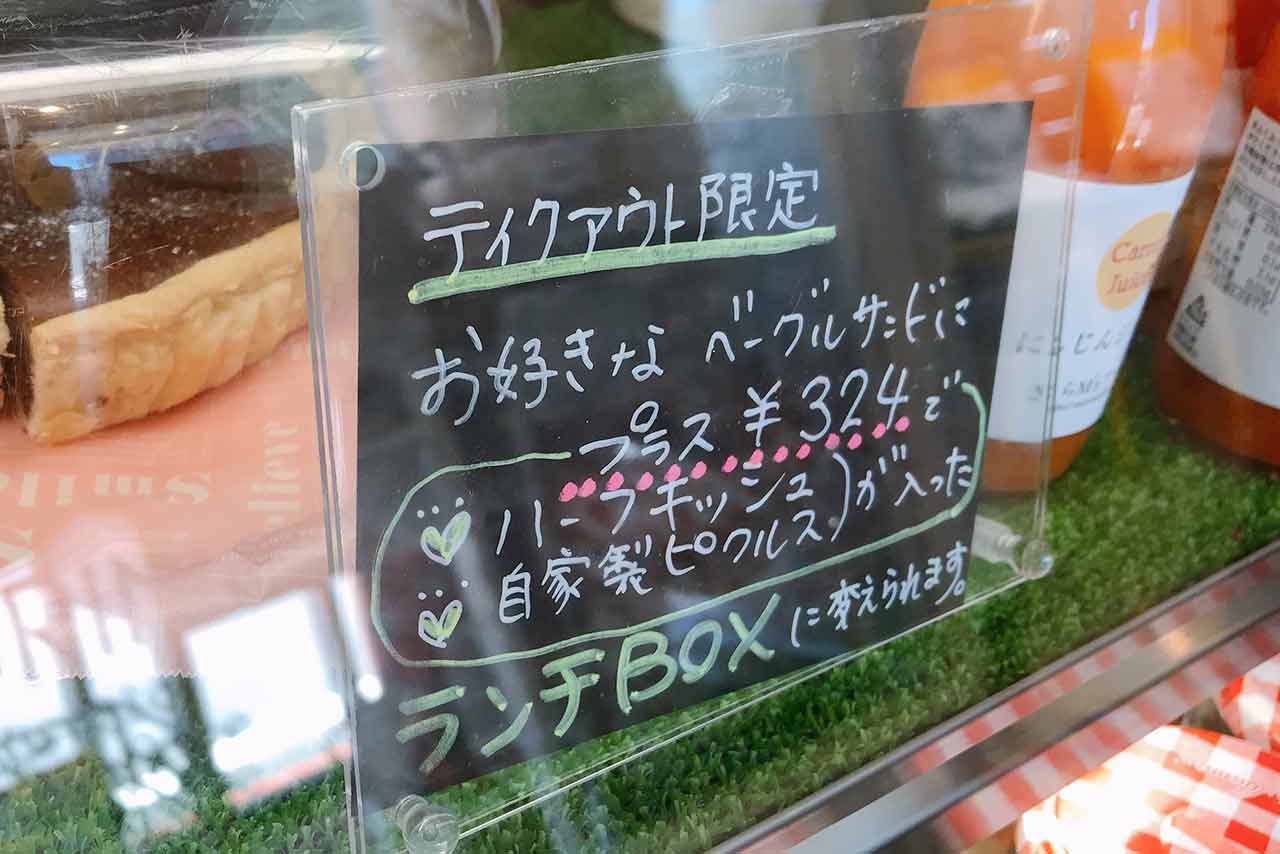 テイクアウト限定
お好きな ベーグルサンドに
プラス ¥324で
ハーフキッシュ
自家製ピクルス)が入った
ランチBOXに変えられます。
Juice